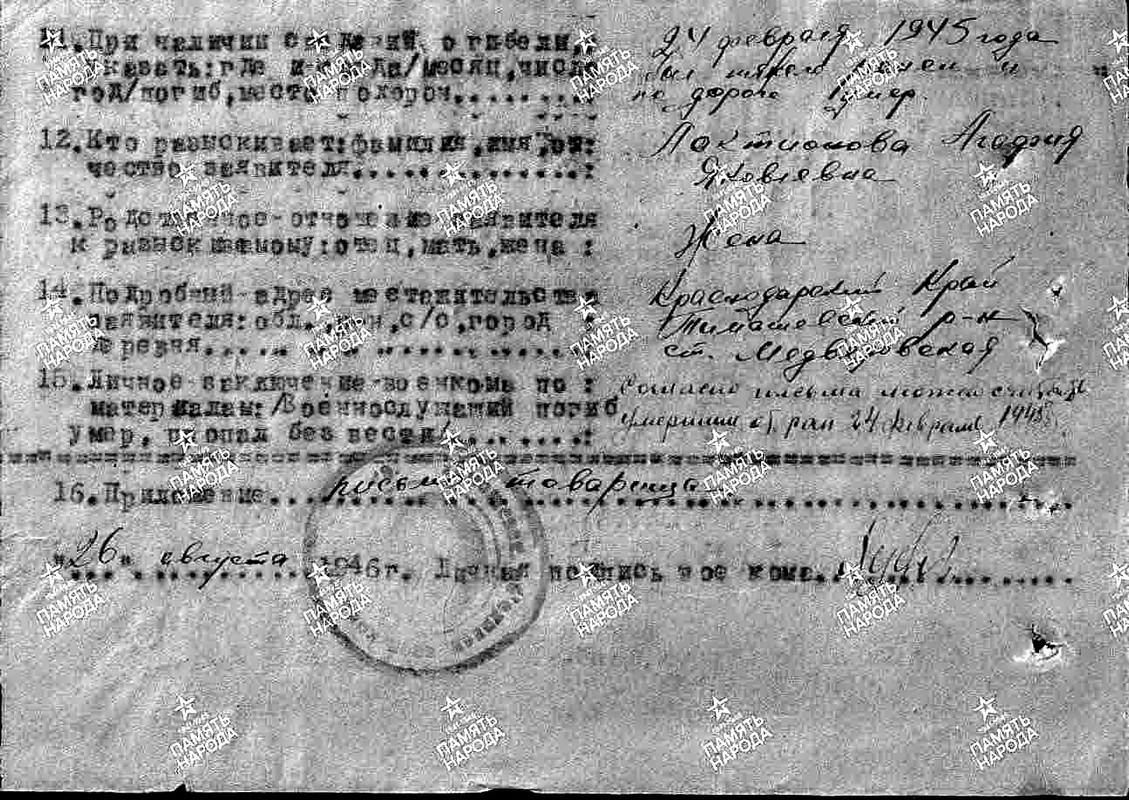 11. При наличии сведений о гибели : 24 февраля 1945 года
указать: где и когда/месяц, число был ранен и
год/погиб, место похорон......... : по дороге умер.
12. Кто разыскивает: фамилия, имя, от: Лактионова Агафия
чество заявителя............... : Яковлевна
13. Родственное отношение заявителя
к разыскиваемому: отец, мать, жена : Жена
14. Подробный адрес местожительства Краснодарский Край
заявителя: обл., рн, с/с, город : Тимашевский р-н
деревня....................... ст. Медведовская
15. Личное заключение военкома по : Согласно письма можно считать
материалам:/Военнослужащий погиб умершим от ран 24 февраля 1945 г.
умер, пропал без вести/........:
16. Приложение... письмо товарища
"26" августа 1946г. Личная подпись военкома.
ПАМЯТЬ НАРОДА